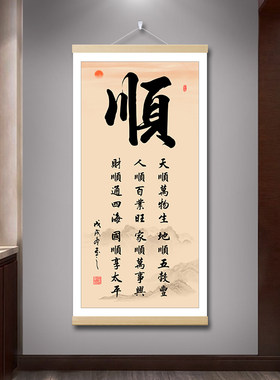 順
天順萬物生 地順五穀豐
人順百業旺 家順萬事興
財順通四海 國順享太平
戊戌